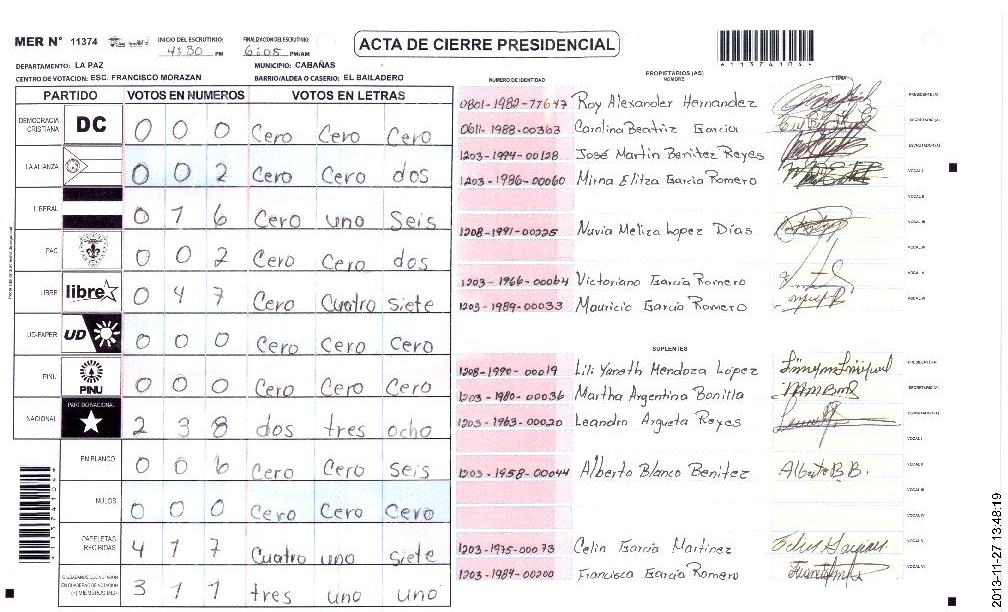 MER N° 11374
INICIO DEL ESCRUTINIO: 4:30 PM
FINALIZACION DEL ESCRUTINIO: 6:05 PM/AM
ACTA DE CIERRE PRESIDENCIAL
6113741046
DEPARTAMENTO: LA PAZ
MUNICIPIO: CABAÑAS
CENTRO DE VOTACION: ESC. FRANCISCO MORAZAN
BARRIO/ALDEA O CASERIO: EL BAILADERO
PARTIDO VOTOS EN NUMEROS VOTOS EN LETRAS
DEMOCRACIA CRISTIANA DC 0 0 0 Cero Cero Cero
LA ALIANZA 0 0 2 Cero Cero dos
LIBERAL 0 1 6 Cero uno Seis
PAC 0 0 2 Cero Cero dos
LIBRE libre 0 4 7 Cero Cuatro siete
UD-FAPER UD 0 0 0 Cero Cero Cero
PINU PINU 0 0 0 Cero Cero Cero
NACIONAL PARTIDO NACIONAL 2 3 8 dos tres ocho
EN BLANCO 0 0 6 Cero Cero seis
NULOS 0 0 0 Cero Cero Cero
PAPELETAS RECIBIDAS 4 1 7 Cuatro uno siete
CIUDADANOS QUE VOTARON EN CUADERNO DE VOTACION (+) MIEMBROS MER 3 1 1 tres uno uno
NUMERO DE IDENTIDAD
PROPIETARIOS (AS)
NOMBRE
FIRMA
0801-1982-77647 Roy Alexander Hernandez PRESIDENTE (A)
0611-1988-00363 Carolina Beatriz Garcia SECRETARIO (A)
1203-1994-00128 José Martin Benitez Reyes ESCRUTADOR (A)
1203-1986-00060 Mirna Elitza Garcia Romero VOCAL I
VOCAL II
1208-1991-00225 Nuvia Meliza Lopez Días VOCAL III
VOCAL IV
1203-1966-00064 Victoriano Garcia Romero VOCAL V
1203-1989-00033 Mauricio Garcia Romero VOCAL VI
SUPLENTES
1208-1990-00019 Lili Yaneth Mendoza Lopez PRESIDENTE (A)
1203-1980-00036 Martha Argentina Bonilla SECRETARIO (A)
1203-1963-00020 Leandro Argueta Reyes ESCRUTADOR (A)
VOCAL I
1203-1958-00044 Alberto Blanco Benitez Alberto B.B. VOCAL II
VOCAL III
VOCAL IV
1203-1975-00073 Celin Garcia Martinez VOCAL V
1203-1984-00200 Francisca Garcia Romero VOCAL VI
2013-11-27 13:48:19